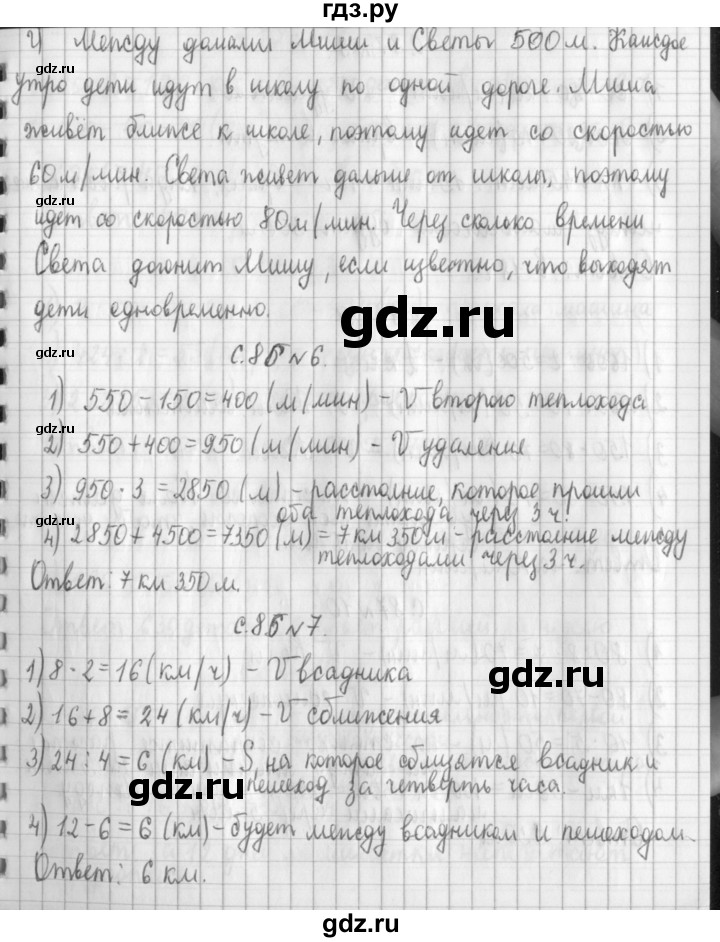 гдз.ру
2) Между домами Миши и Светы 500 м. Каждое
утро дети идут в школу по одной дороге. Миша
живёт ближе к школе, поэтому идет со скоростью
60 м/мин. Света живет дальше от школы, поэтому
идет со скоростью 80 м/мин. Через сколько времени
Света догонит Мишу, если известно, что выходят
дети одновременно.
с.85 №6.
1) 550 - 150 = 400 (м/мин) - V второго теплохода
2) 550 + 400 = 950 (м/мин) - V удаление
3) 950 · 3 = 2850 (м) - расстояние, которое прошли
оба теплохода через 3 ч.
4) 2850 + 4500 = 7350 (м) = 7 км 350 м - расстояние между
теплоходами через 3 ч.
Ответ: 7 км 350 м.
с.85 №7.
1) 8 · 2 = 16 (км/ч) - V всадника
2) 16 + 8 = 24 (км/ч) - V сближения
3) 24 : 4 = 6 (км) - S, на которое сблизятся всадник и
пешеход за четверть часа.
4) 12 - 6 = 6 (км) - будет между всадником и пешеходом.
Ответ: 6 км.
gdz.ru
gdz.ru
gdz.ru
gdz.ru
gdz.ru
gdz.ru
gdz.ru
gdz.ru